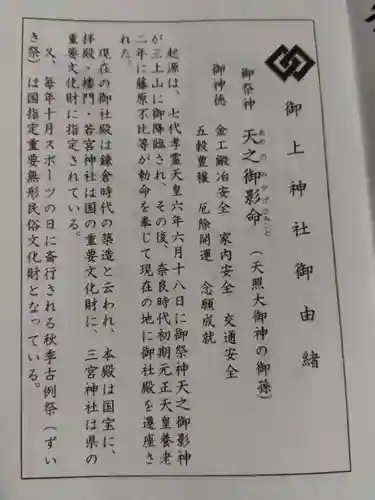 御上神社御由緒
御祭神　天之御影命（天照大御神の御孫）
あめのみかげのみこと
御神徳　金工鍛冶安全　家内安全　交通安全
五穀豊穣　厄除開運　念願成就
起源は、七代孝霊天皇六年六月十八日に御祭神天之御影神
が三上山に御降臨され、その後、奈良時代初期元正天皇養老
二年に藤原不比等が勅命を奉じて現在の地に御社殿を遷座さ
れた。
現在の御社殿は鎌倉時代の築造と云われ、本殿は国宝に、
拝殿・楼門・若宮神社は国の重要文化財に、三宮神社は県の
重要文化財に指定されている。
又、毎年十月スポーツの日に斎行される秋季古例祭（ずい
き祭）は国指定重要無形民俗文化財となっている。